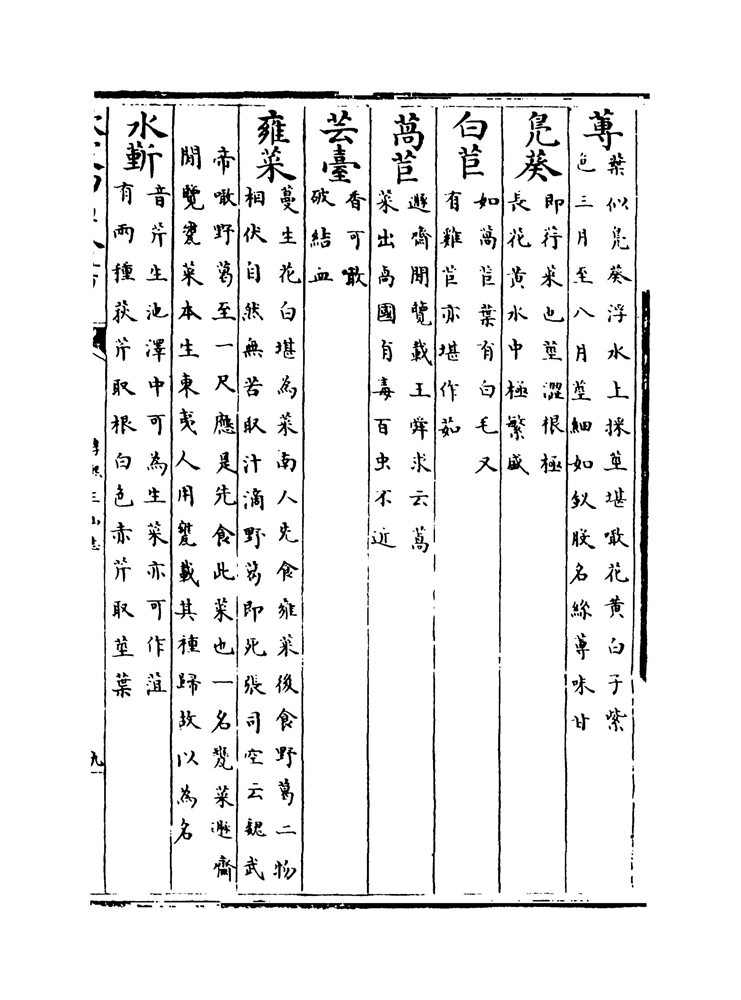 蓴葉似鳬葵浮水上採莖堪噉花黄白子紫
色三月至八月莖細如釵股名絲蓴味甘
鳬葵即荇菜也莖澀根極
長花黄水中極繁盛
白苣如萵苣葉有白毛又
有雞苣亦堪作茹
萵苣遯齋閒覽載王舜求云萵
菜出咼國有毒百虫不近
芸臺香可噉
破結血
雍菜蔓生花白堪為菜南人先食雍菜後食野葛二物
相伏自然無苦取汁滴野葛即死張司空云魏武
帝噉野葛至一尺應是先食此菜也一名甕菜遯齋
閒覽甕菜本生東夷人用甕載其種歸故以為名
水蘄音芹生池澤中可為生菜亦可作葅
有兩種荻芹取根白色赤芹取莖葉
淳熙三山志
九